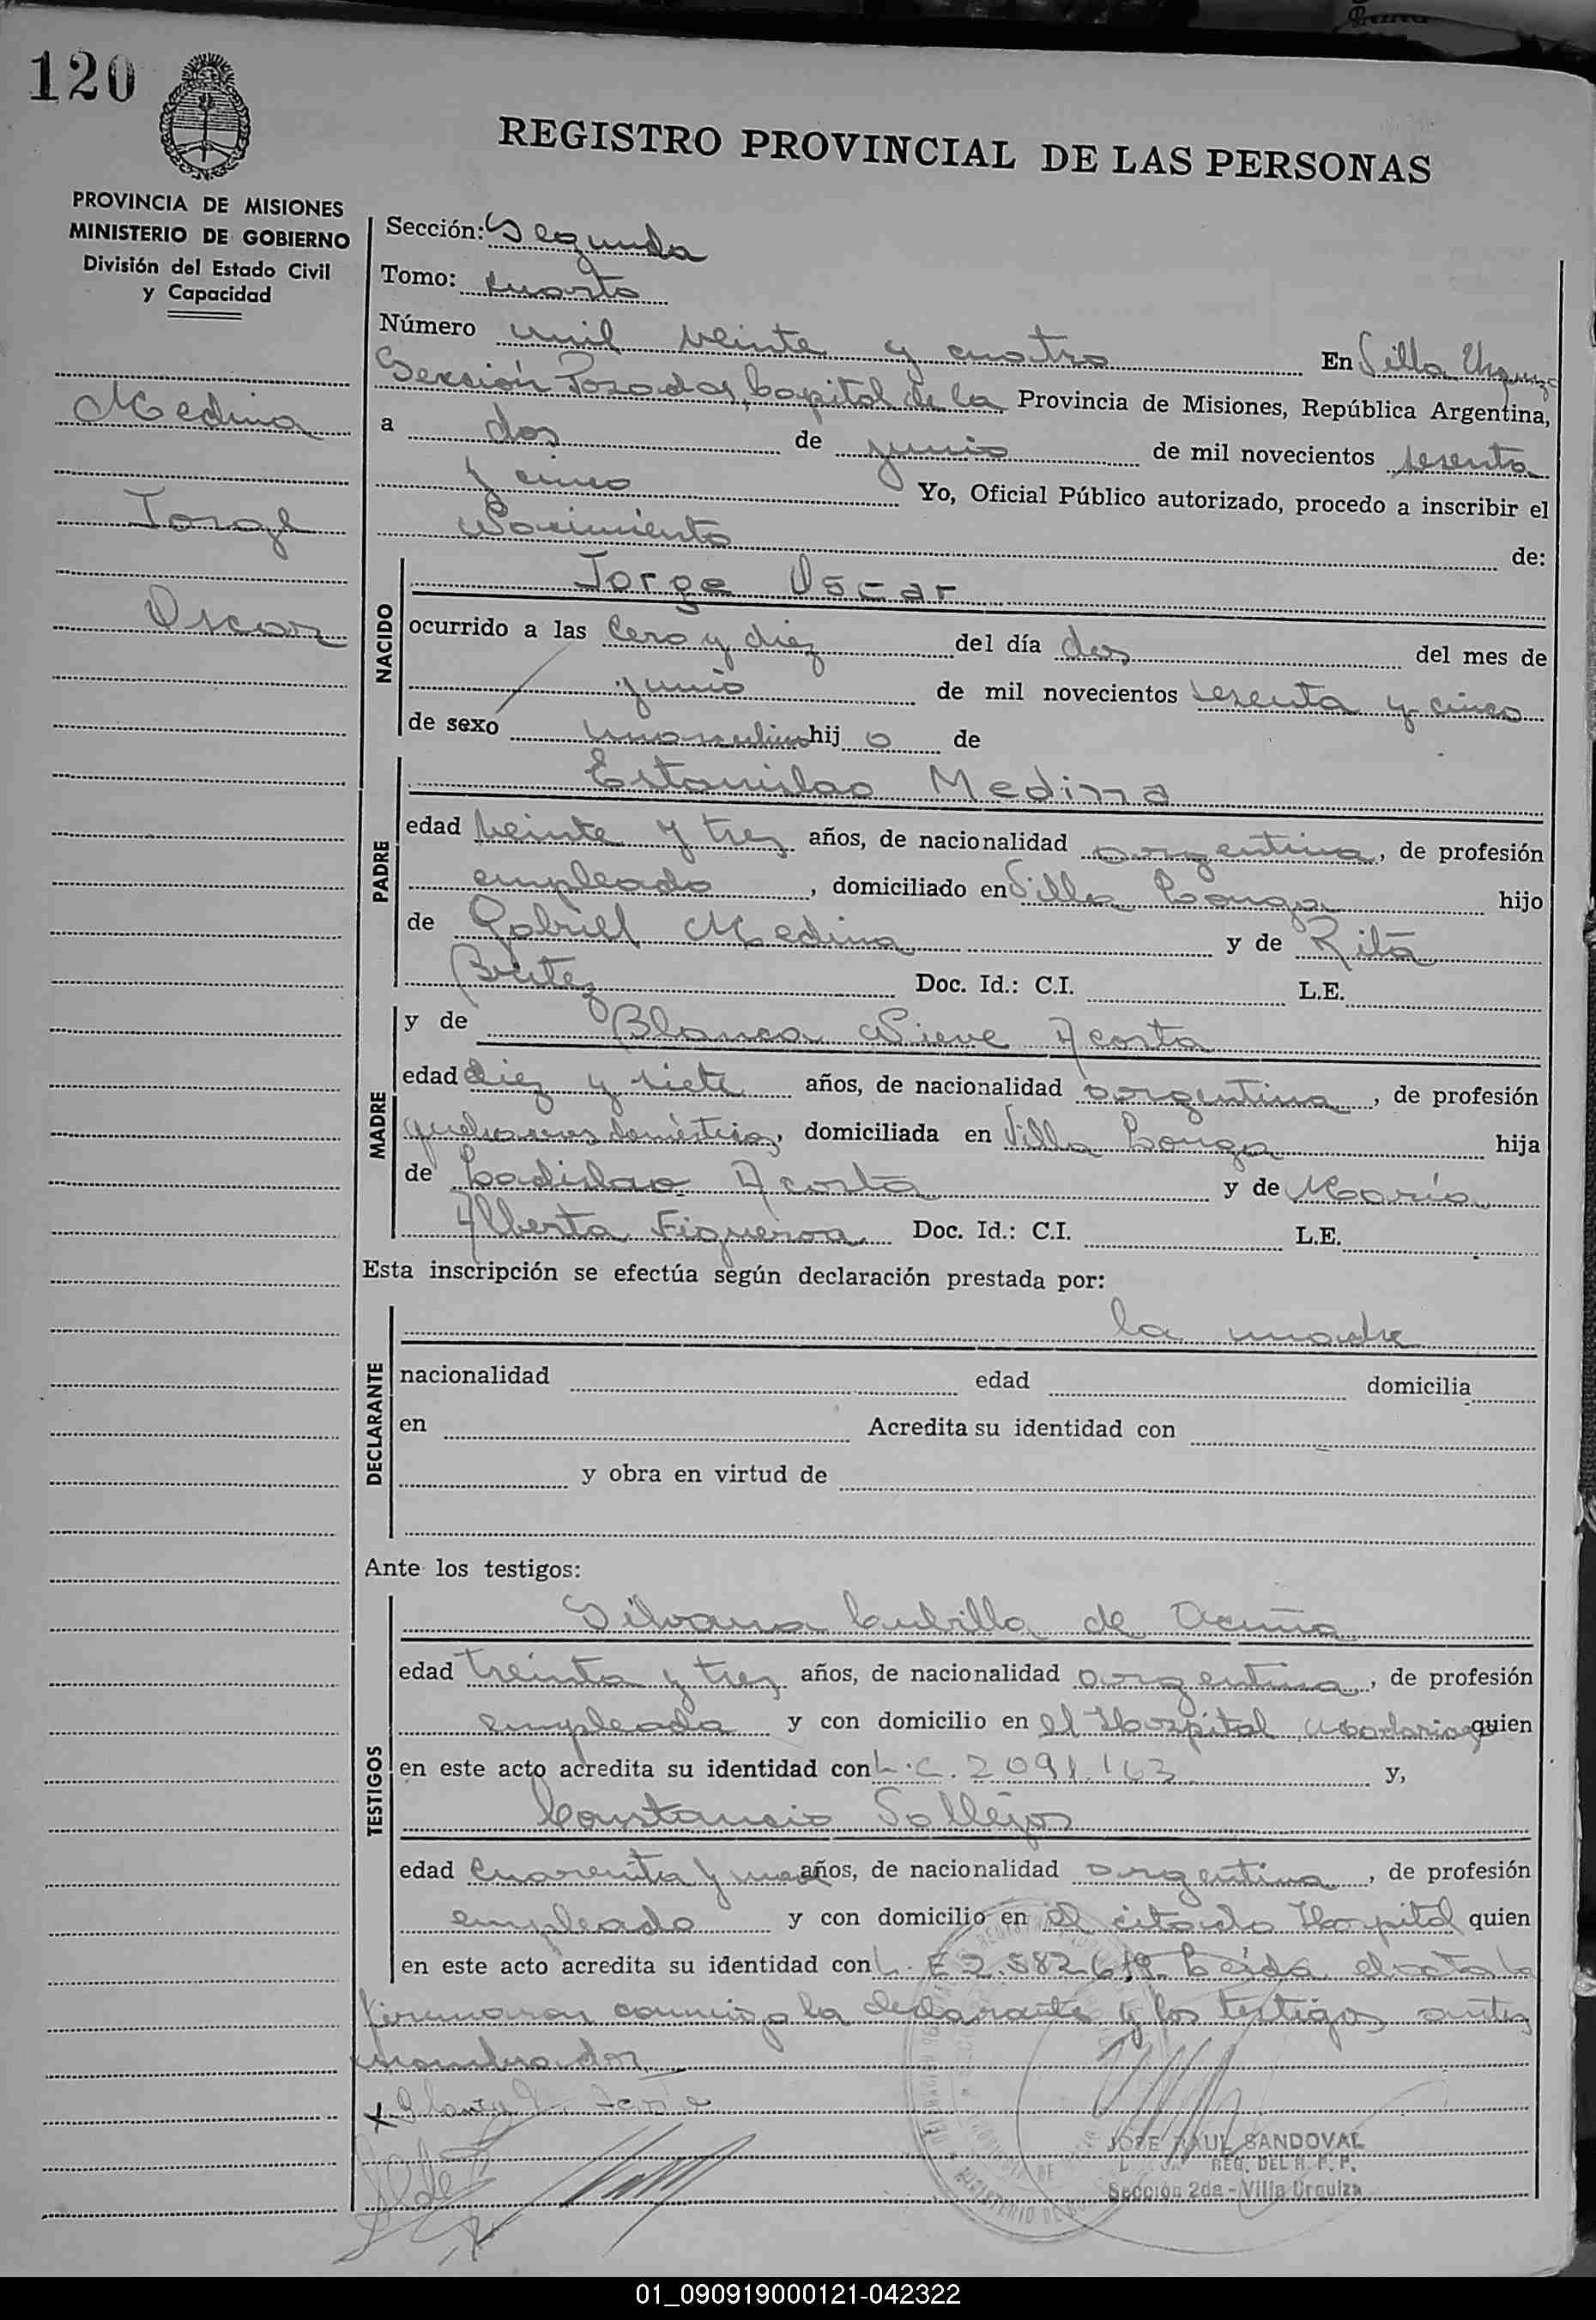 120
REGISTRO PROVINCIAL DE LAS PERSONAS
PROVINCIA DE MISIONES
MINISTERIO DE GOBIERNO
División del Estado Civil
y Capacidad
Medina
Jorge
Oscar
Sección: Segunda
Tomo: cuarto
Número mil veinte y cuatro En Villa Urquiza
Sección Posadas, Capital de la Provincia de Misiones, República Argentina,
a dos de junio de mil novecientos sesenta
y cinco Yo, Oficial Público autorizado, procedo a inscribir el
Nacimiento de:
NACIDO
Jorge Oscar
ocurrido a las Cero y diez del día dos del mes de
junio de mil novecientos sesenta y cinco
de sexo masculino hij o de
PADRE
Estanislao Medina
edad veinte y tres años, de nacionalidad argentina, de profesión
empleado, domiciliado en Villa Longa hijo
de Gabriel Medina y de Rita
Benitez Doc. Id.: C.I. L.E.
MADRE
y de Blanca Nieve Acosta
edad diez y siete años, de nacionalidad argentina, de profesión
quehaceres domésticos, domiciliada en Villa Longa hija
de Ladislao Acosta y de María
Alberta Figueroa Doc. Id.: C.I. L.E.
Esta inscripción se efectúa según declaración prestada por:
DECLARANTE
la madre
nacionalidad edad domicilia
en Acredita su identidad con
y obra en virtud de
Ante los testigos:
TESTIGOS
Silvana de Acuña
edad treinta y tres años, de nacionalidad argentina, de profesión
empleada y con domicilio en el Hospital Madariaga quien
en este acto acredita su identidad con L.C. 2.091.163 y,
Constancio Sollejos
edad cuarenta y años, de nacionalidad argentina, de profesión
empleado y con domicilio en el citado Hospital quien
en este acto acredita su identidad con L.E. Leída el acta la
firmaron conmigo la declarante y los testigos antes
nombrados
x
JOSE RAUL SANDOVAL
REG. DEL R. P. P.
Sección 2da - Villa Urquiza
01_090919000121-042322